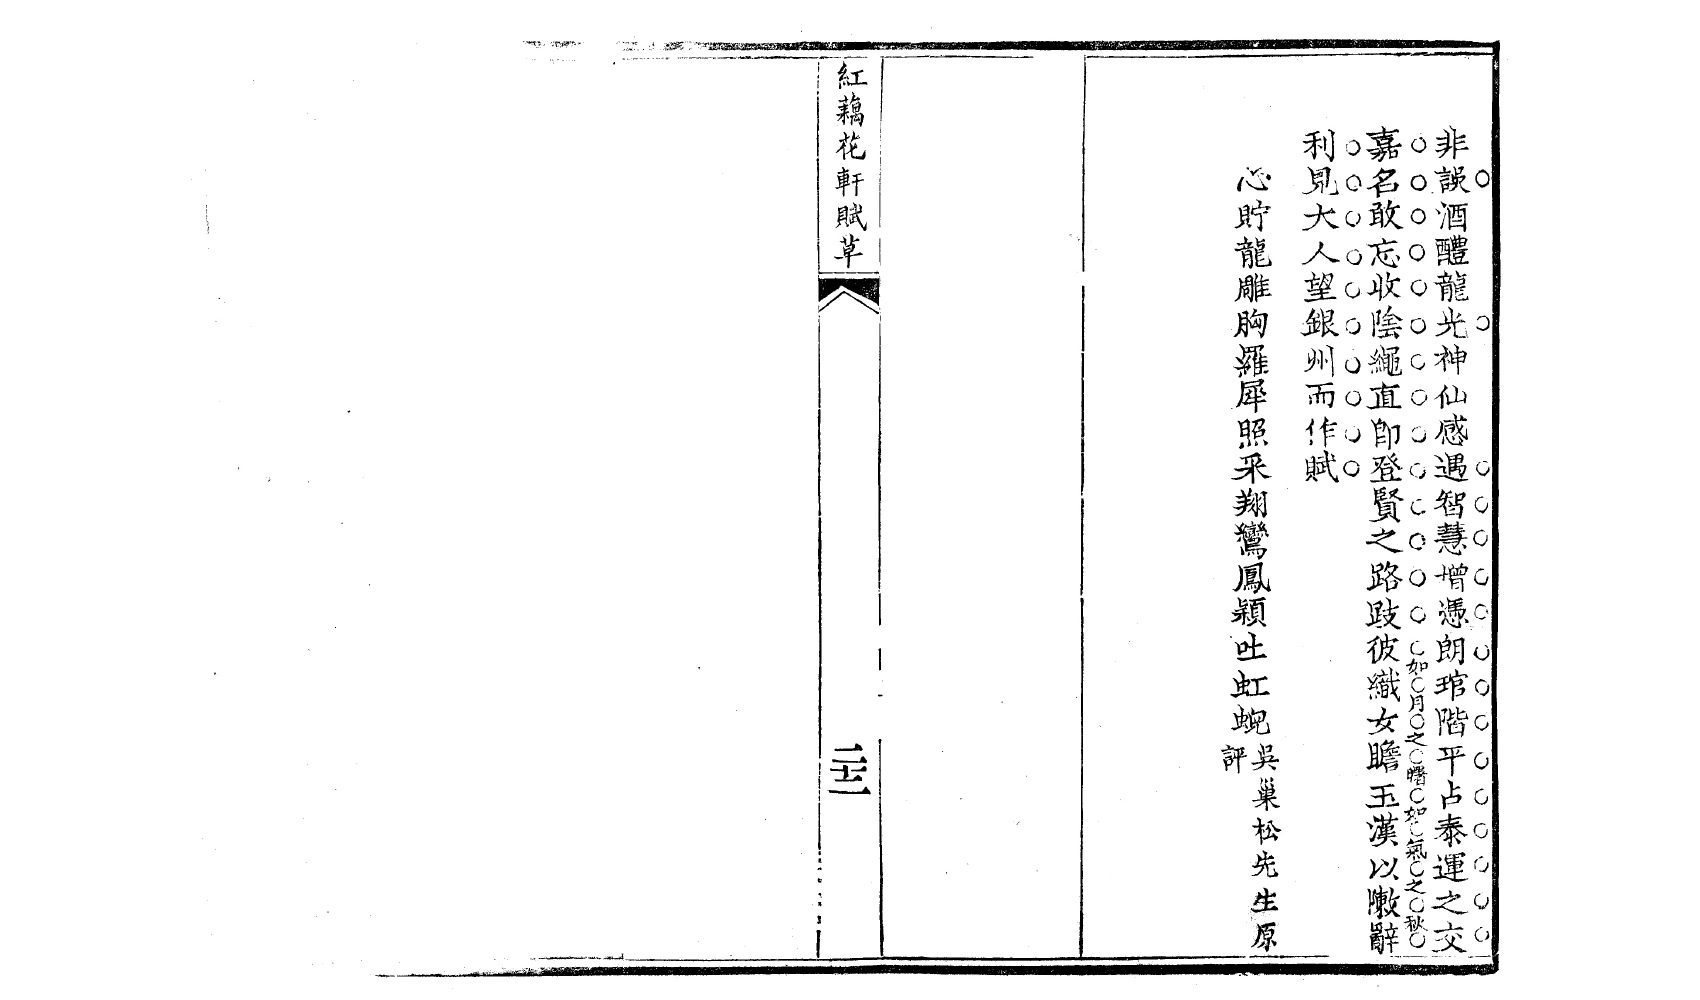 非誤酒醴龍光神仙感遇智慧增憑朗琯階平占泰運之交
嘉名敢忘收陰繩直卽登賢之路跂彼織女瞻玉漢以陳辭
如月之曙如氣之秋
利見大人望銀州而作賦
心貯龍雕胸羅犀照采翔鸞鳳穎吐虹蜺
吳巢松先生原
評
紅藕花軒賦草
二十二